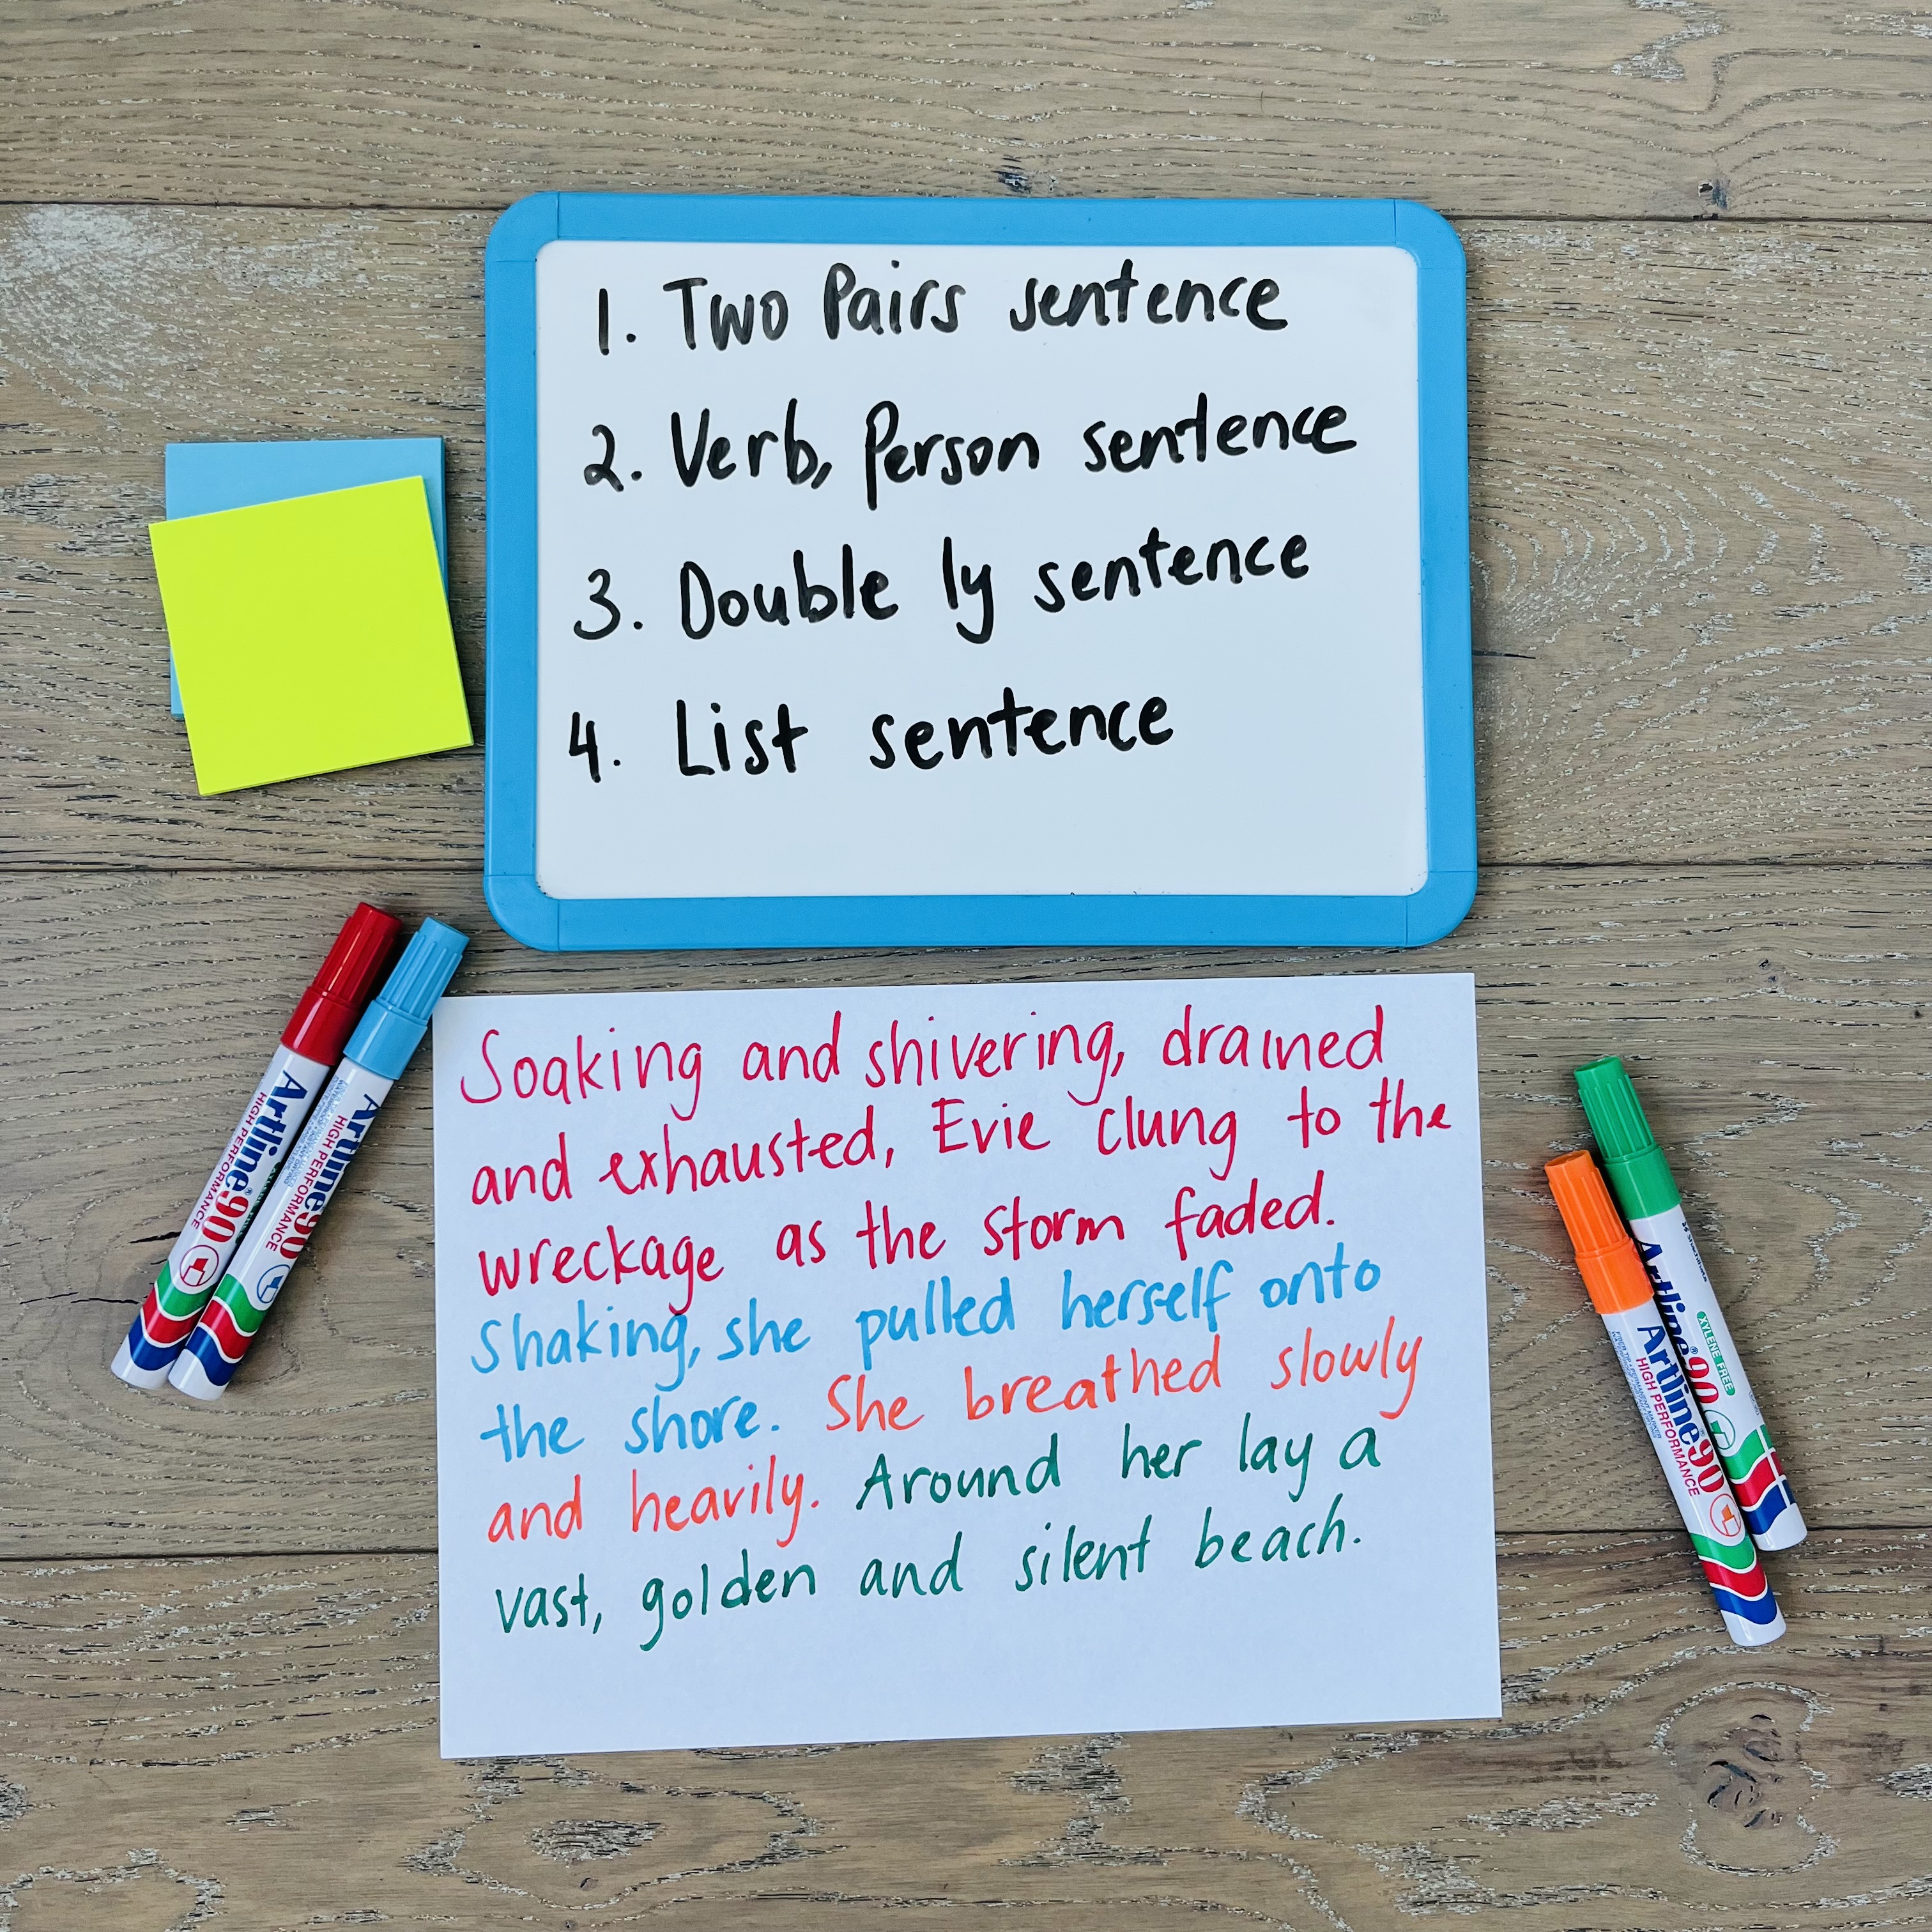 1. Two Pairs sentence
2. Verb, Person sentence
3. Double ly sentence
4. List sentence
Soaking and shivering, drained
and exhausted, Evie clung to the
wreckage as the storm faded.
Shaking, she pulled herself onto
the shore. She breathed slowly
and heavily. Around her lay a
vast, golden and silent beach.
Artline®90
HIGH PERFORMANCE
Artline90
HIGH PERFORMANCE
Artline®90
XYLENE FREE
Artline®90
HIGH PERFORMANCE